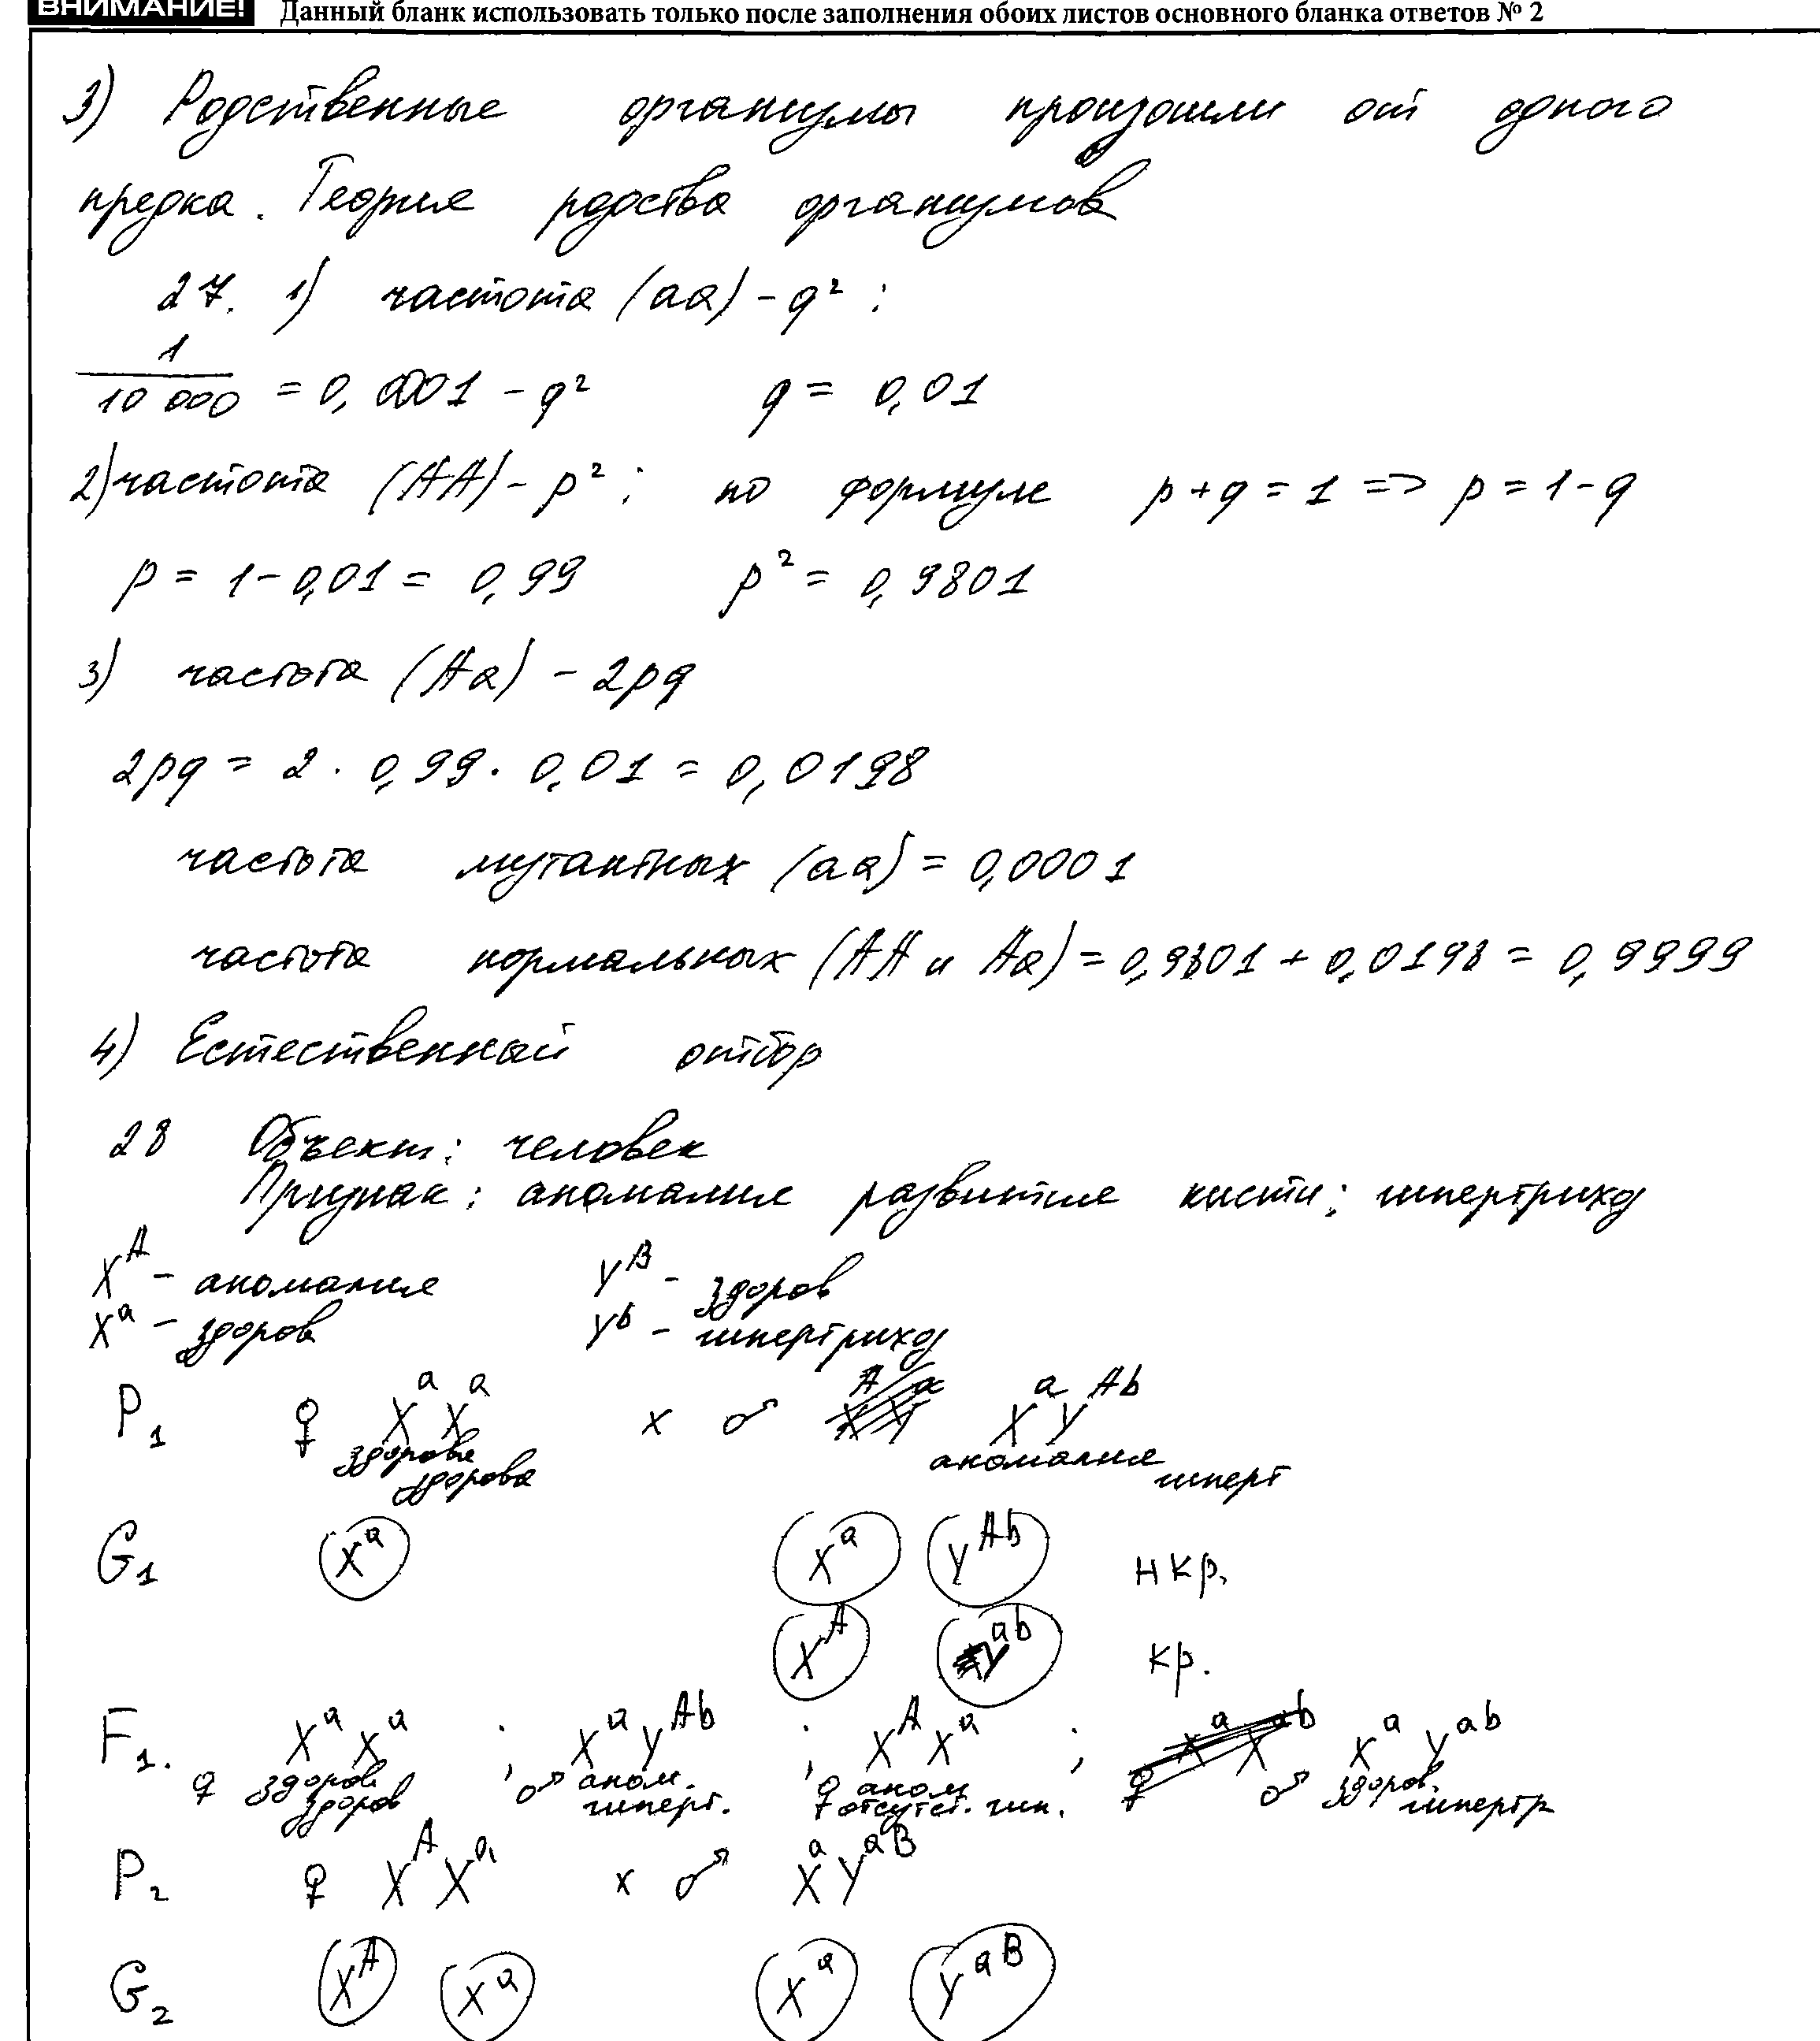 ВНИМАНИЕ! Данный бланк использовать только после заполнения обоих листов основного бланка ответов № 2
3) Родственные организмы произошли от одного
предка. Теория родства организмов
27. 1) частота (aa) - q² :
1/10 000 = 0,0001 - q² q = 0,01
2) частота (AA) - p² ; по формуле p + q = 1 => p = 1 - q
p = 1 - 0,01 = 0,99 p² = 0,9801
3) частота (Aa) - 2pq
2pq = 2 · 0,99 · 0,01 = 0,0198
частота мутантных (aa) = 0,0001
частота нормальных (AA и Aa) = 0,9801 + 0,0198 = 0,9999
4) Естественный отбор
28 Объект: человек
Признак: аномалия развития кисти; гипертрихоз
X^A - аномалия Y^B - здоров
X^a - здоров Y^b - гипертрихоз
P₁ ♀ X^a X^a x ♂ X^a Y^Ab
здоровье аномалия
здорова гиперт
G₁ X^a X^a Y^Ab нкр.
X^A Y^ab кр.
F₁. X^a X^a ; X^a Y^Ab ; X^A X^a ; X^a Y^ab
♀ здоров ♂ аном. ♀ аном ♂ здоров.
здоров гиперт. отсутст. гип. гипертр
P₂ ♀ X^A X^a x ♂ X^a Y^aB
G₂ X^A X^a X^a Y^aB